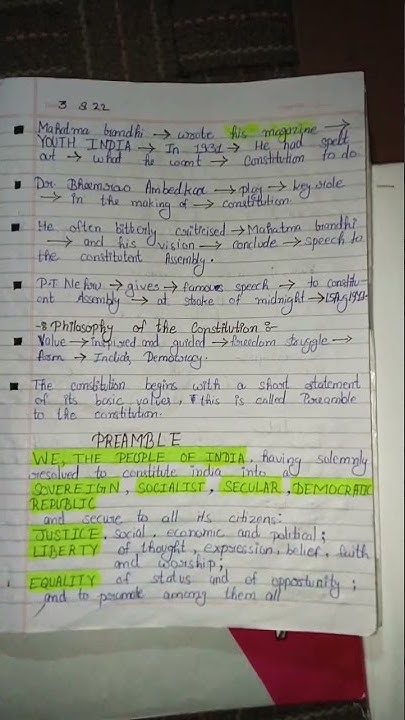 3 8 22
Mahatma Gandhi → wrote his magazine →
YOUTH INDIA → In 1931 → He had spelt
out → what he want → Constitution to do
Dr. Bheemrao Ambedkar → play → key role
→ in the making of → constitution.
He often bitterly criticised → Mahatma Gandhi
→ and his vision → conclude → speech to
the constituent Assembly.
P.T. Nehru → gives → famous speech → to constitu-
ent Assembly → at stroke of midnight → 15
Philosophy of the Constitution :-
Value → inspired and guided → freedom struggle →
form → Democracy.
The constitution begins with a short statement
of its basic values, this is called Preamble
to the constitution.
PREAMBLE
WE, THE PEOPLE OF INDIA, having solemnly
resolved to constitute india into a
SOVEREIGN, SOCIALIST, SECULAR, DEMOCRATIC
REPUBLIC
and secure to all its citizens:
JUSTICE, social, economic and political;
LIBERTY of thought, expression, belief, faith
and worship;
EQUALITY of status and of opportunity;
and to promote among them all